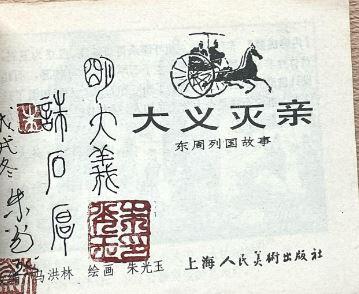 大义灭亲
东周列国故事
明大義
誅石厚
戊戌冬
朱
马洪林 绘画 朱光玉
上海人民美術出版社